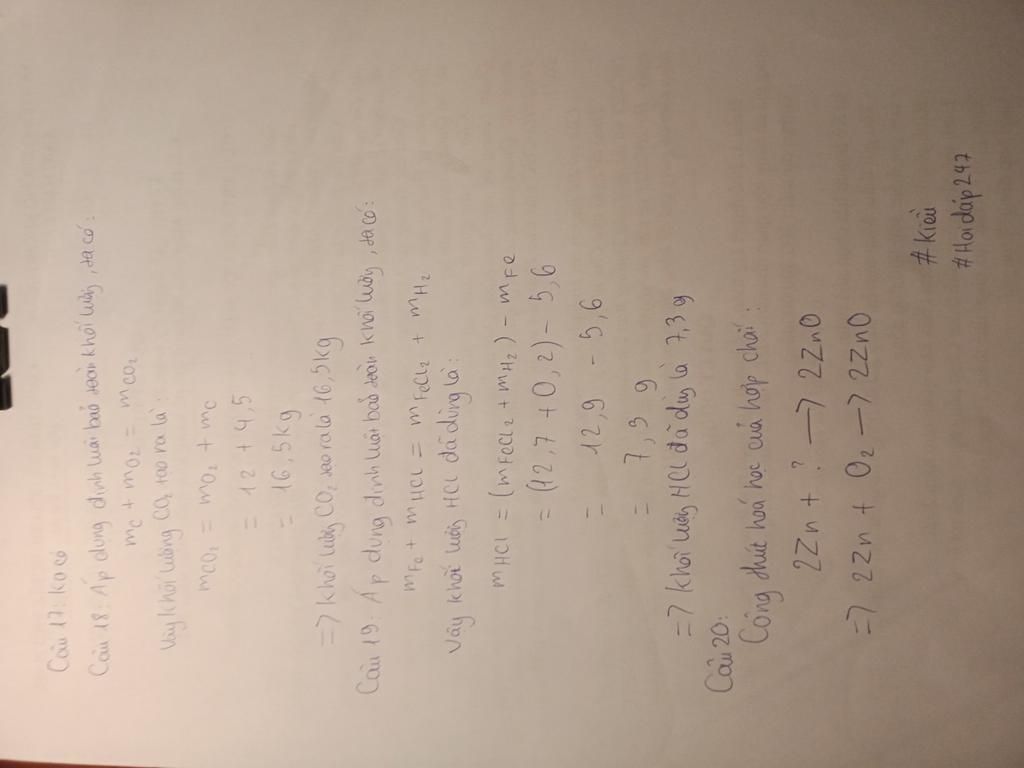 Câu 17: ko có
Câu 18: Áp dụng định luật bảo toàn khối lượng, ta có:
mC + mO₂ = mCO₂
Vậy khối lượng CO₂ tạo ra là:
mCO₂ = mO₂ + mC
= 12 + 4,5
= 16,5kg
=> Khối lượng CO₂ tạo ra là 16,5kg
Câu 19: Áp dụng định luật bảo toàn khối lượng, ta có:
mFe + mHCl = mFeCl₂ + mH₂
Vậy khối lượng HCl đã dùng là:
mHCl = (mFeCl₂ + mH₂) - mFe
= (12,7 + 0,2) - 5,6
= 12,9 - 5,6
= 7,3 g
=> Khối lượng HCl đã dùng là 7,3 g
Câu 20:
Công thức hoá học của hợp chất:
2Zn + ? → 2ZnO
=> 2Zn + O₂ → 2ZnO
#Kiều
#Hoidáp247